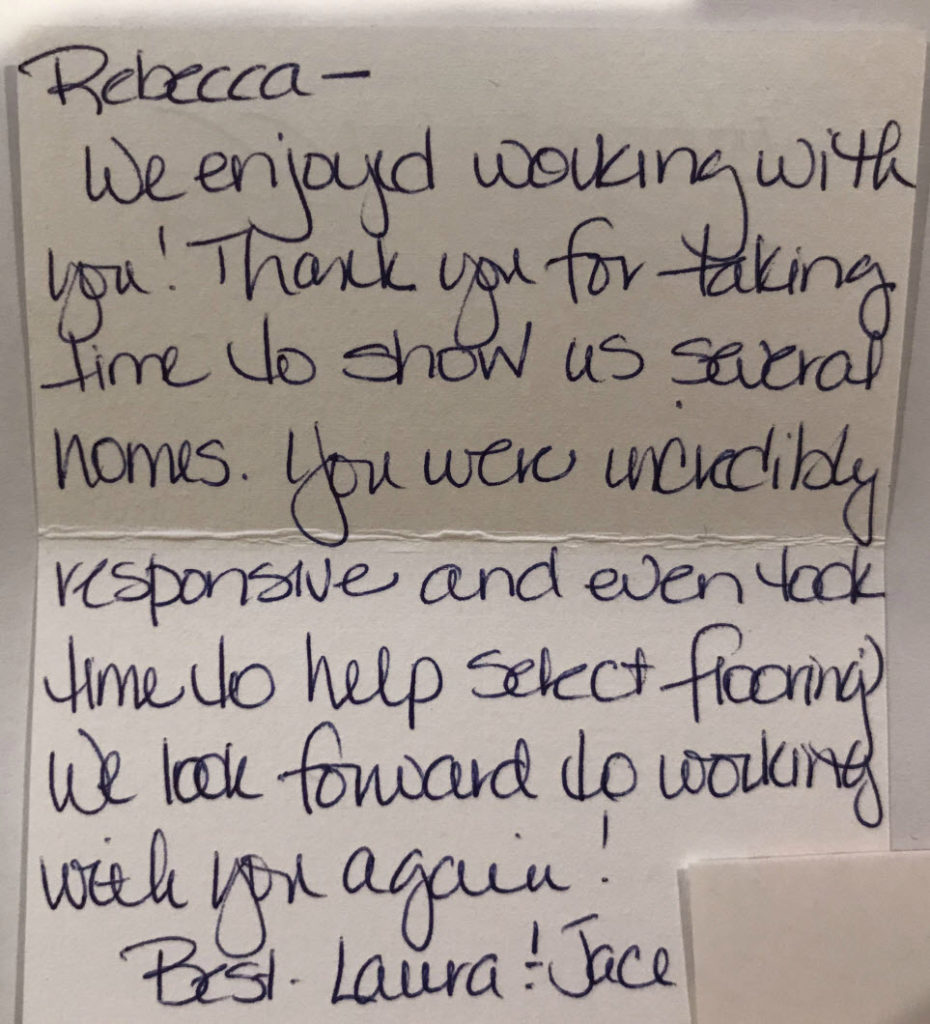 Rebecca –
We enjoyed working with
you! Thank you for taking
time to show us several
homes. You were incredibly
responsive and even took
time to help select flooring!
We look forward to working
with you again!
Best. Laura & Jace